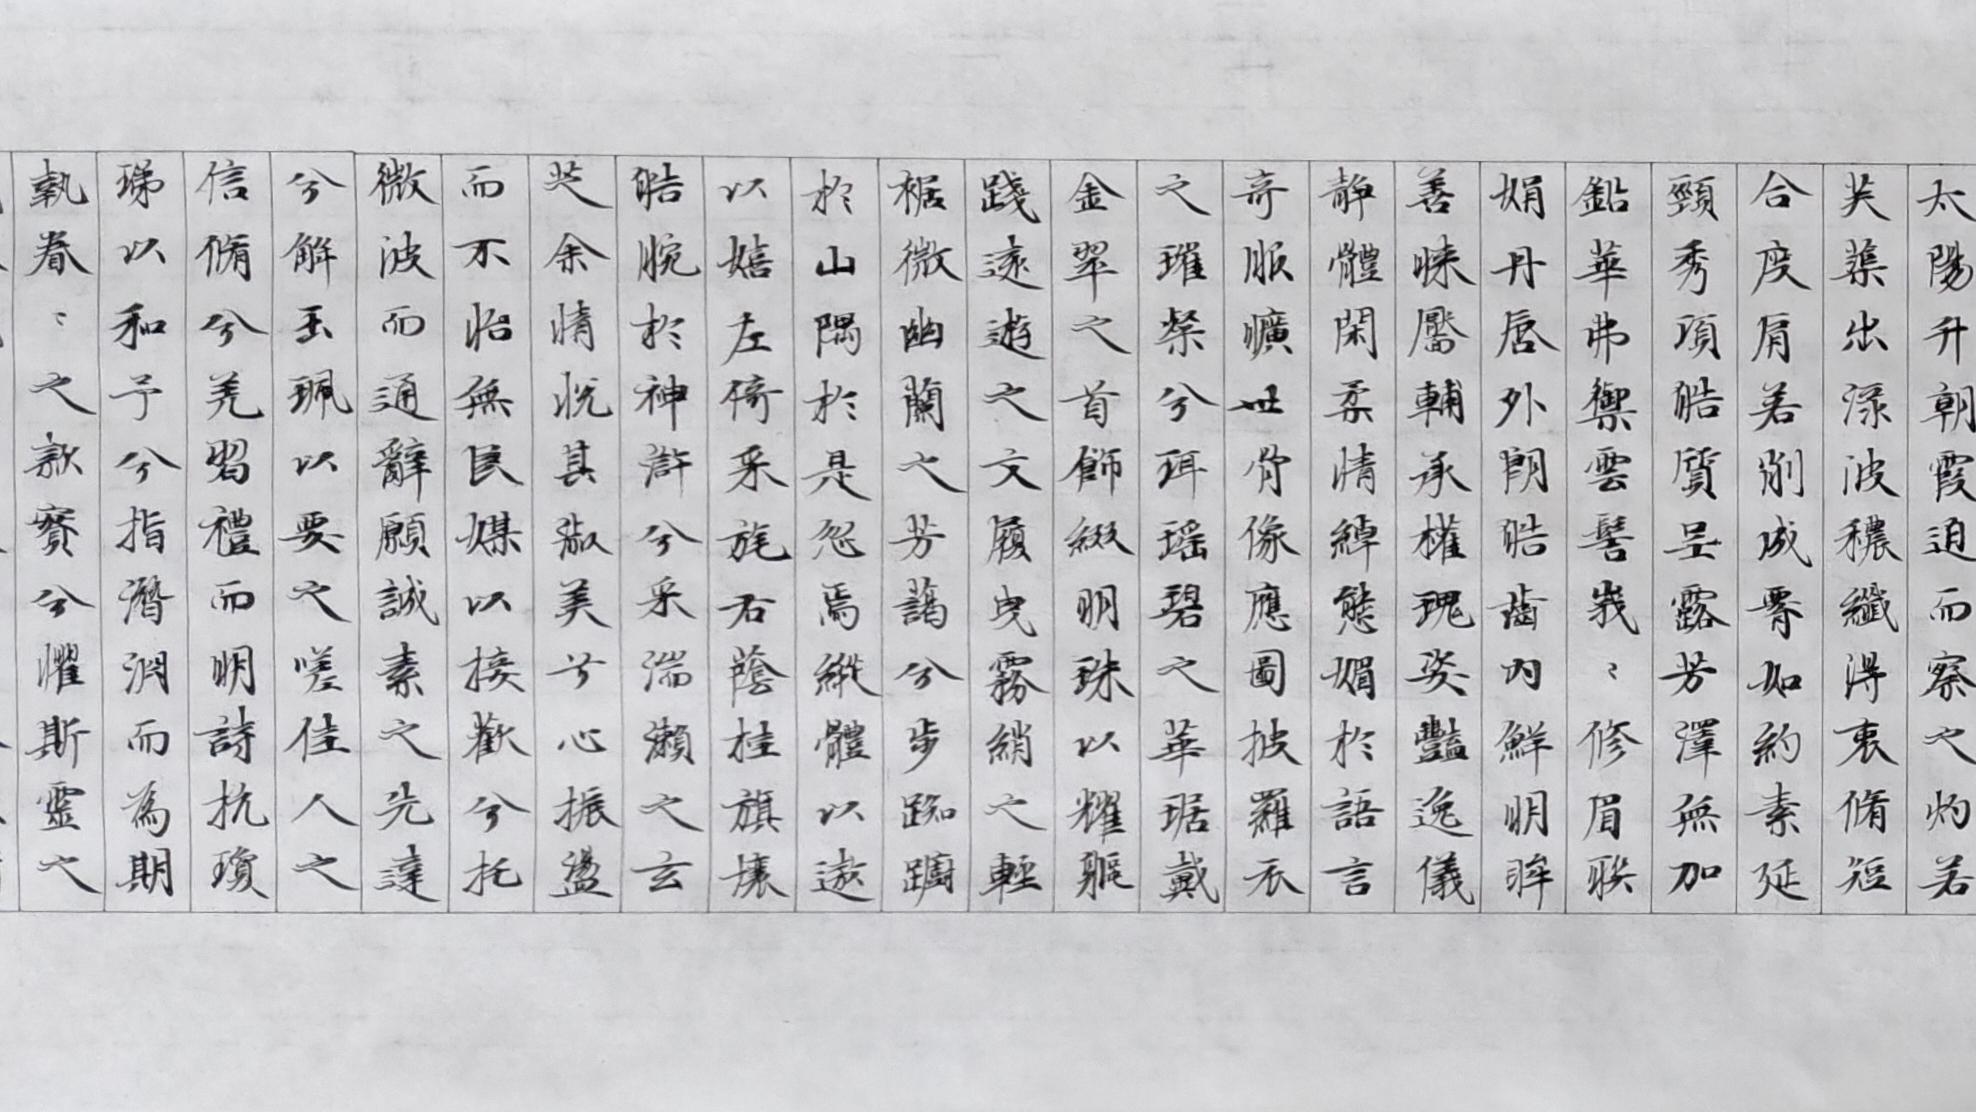 太陽升朝霞迫而察之灼若
芙蕖出淥波穠纖得衷脩短
合度肩若削成腰如約素延
頸秀項皓質呈露芳澤無加
鉛華弗御雲髻峩〻修眉聯
娟丹唇外朗皓齒內鮮明眸
善睞靨輔承權瑰姿豔逸儀
靜體閑柔情綽態媚於語言
奇服曠世骨像應圖披羅衣
之璀粲兮珥瑶碧之華琚戴
金翠之首飾綴明珠以耀軀
踐遠遊之文履曳霧綃之輕
裾微幽蘭之芳藹兮步踟躕
於山隅於是忽焉縱體以遨
以嬉左倚采旄右蔭桂旗攘
皓腕於神滸兮采湍瀨之玄
芝余情悦其淑美兮心振盪
而不怡無良媒以接歡兮托
微波而通辭願誠素之先達
兮解玉珮以要之嗟佳人之
信脩兮羌習禮而明詩抗瓊
珶以和予兮指潛淵而為期
執眷〻之款實兮懼斯靈之